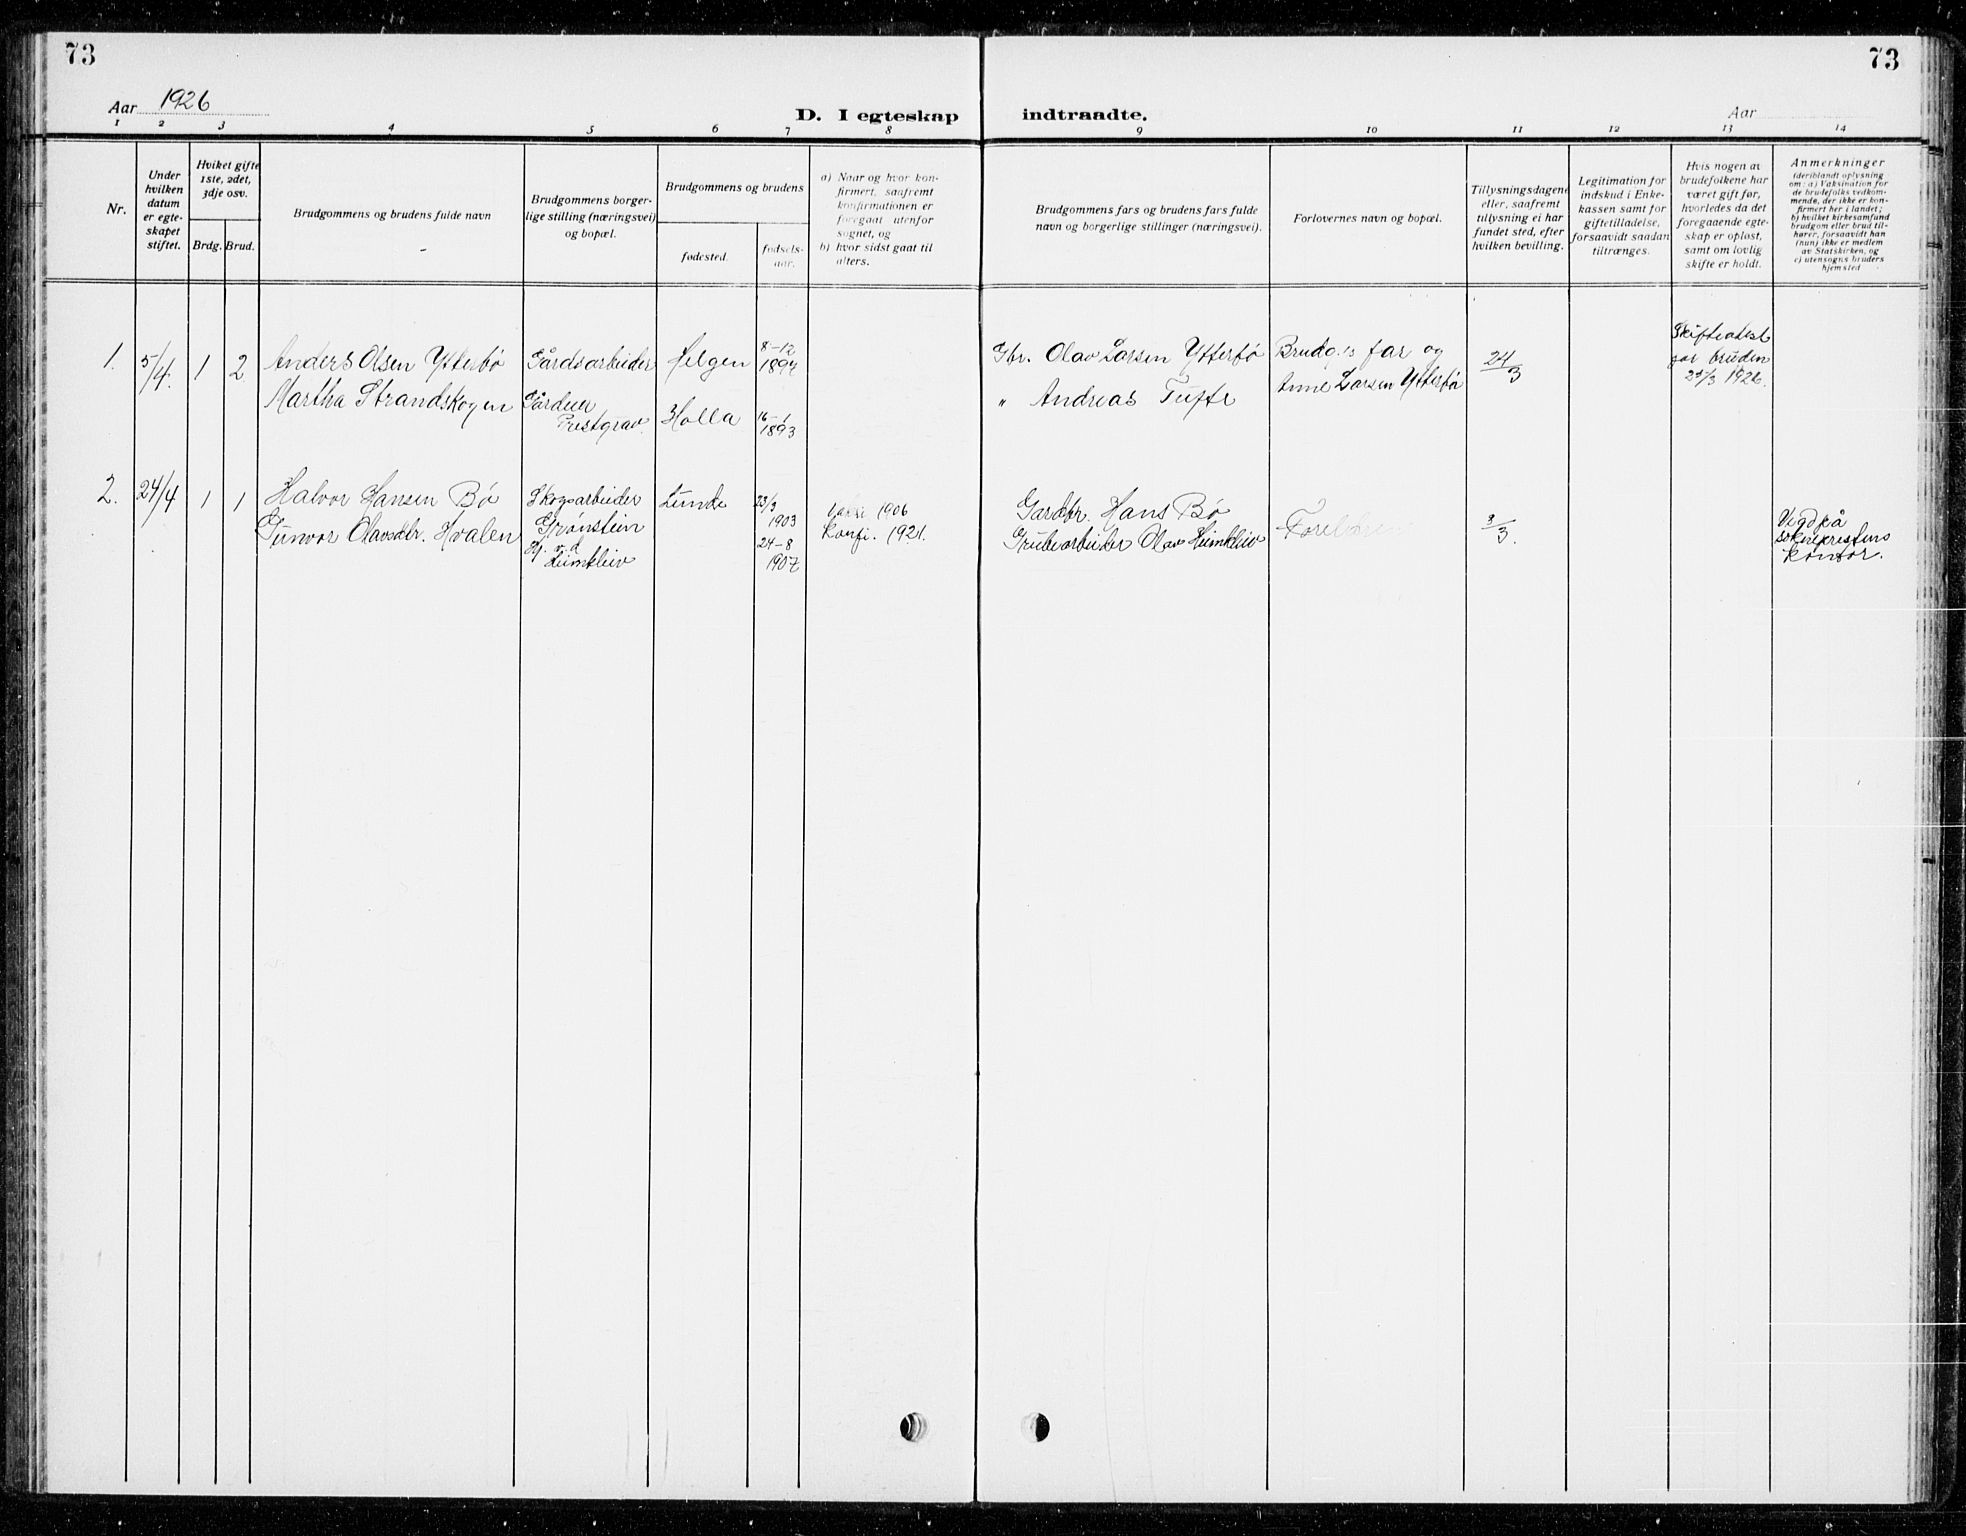 73
73
Aar 1926
D. I egteskap indtraadte.
Aar
1 2 3 4 5 6 7 8 9 10 11 12 13 14
Nr.
Under
hvilken
datum
er egte-
skapet
stiftet.
Hvilket gifte
1ste, 2det,
3dje osv.
Brdg. Brud.
Brudgommens og brudens fulde navn
Brudgommens borger-
lige stilling (næringsvei)
og bopæl.
Brudgommens og brudens
fødested.
fødsels-
aar.
a) Naar og hvor kon-
firmert, saafremt
konfirmationen er
foregaat utenfor
sognet, og
b) hvor sidst gaat til
alters.
Brudgommens fars og brudens fars fulde
navn og borgerlige stillinger (næringsvei).
Forlovernes navn og bopæl.
Tillysningsdagene
eller, saafremt
tillysning ei har
fundet sted, efter
hvilken bevilling.
Legitimation for
indskud i Enke-
kassen samt for
giftetilladelse,
forsaavidt saadan
tiltrænges.
Hvis nogen av
brudefolkene har
været gift før,
hvorledes da det
foregaaende egte-
skap er opløst,
samt om lovlig
skifte er holdt.
Anmerkninger
(deriblandt oplysning
om: a) Vaksination for
de brudefolks vedkom-
mende, der ikke er kon-
firmert her i landet;
b) hvilket kirkesamfund
brudgom eller brud til-
hører, forsaavidt han
(hun) ikke er medlem
av Statskirken, og
c) utensogns bruders
hjemsted
1. 5/4. 1 2
Anders Olsen Ytterbø
Martha Strandskogen
Gårdsarbeider
Gårdeier
Prestgrav.
Helgen
Holla
8-12
1894
16-1
1893
Gbr. Olav Larsen Ytterbø
" Andreas Tufte
Brudg.s far og
Anne Larsen Ytterbø
24/3
Skifteatest
for bruden
25/3 1926.
2. 24/4 1 1
Halvor Hansen Bø
Gunvor Olavsdtr. Hvalen
Skogsarbeider
Grønstein
Lunde
23/3
1903
24-8
1907
1906
Konfi. 1921.
Gardbr. Hans Bø
Grubearbeider Olav Heimkleiv
3/3.
Vigd på
sokneprestens
kontor.